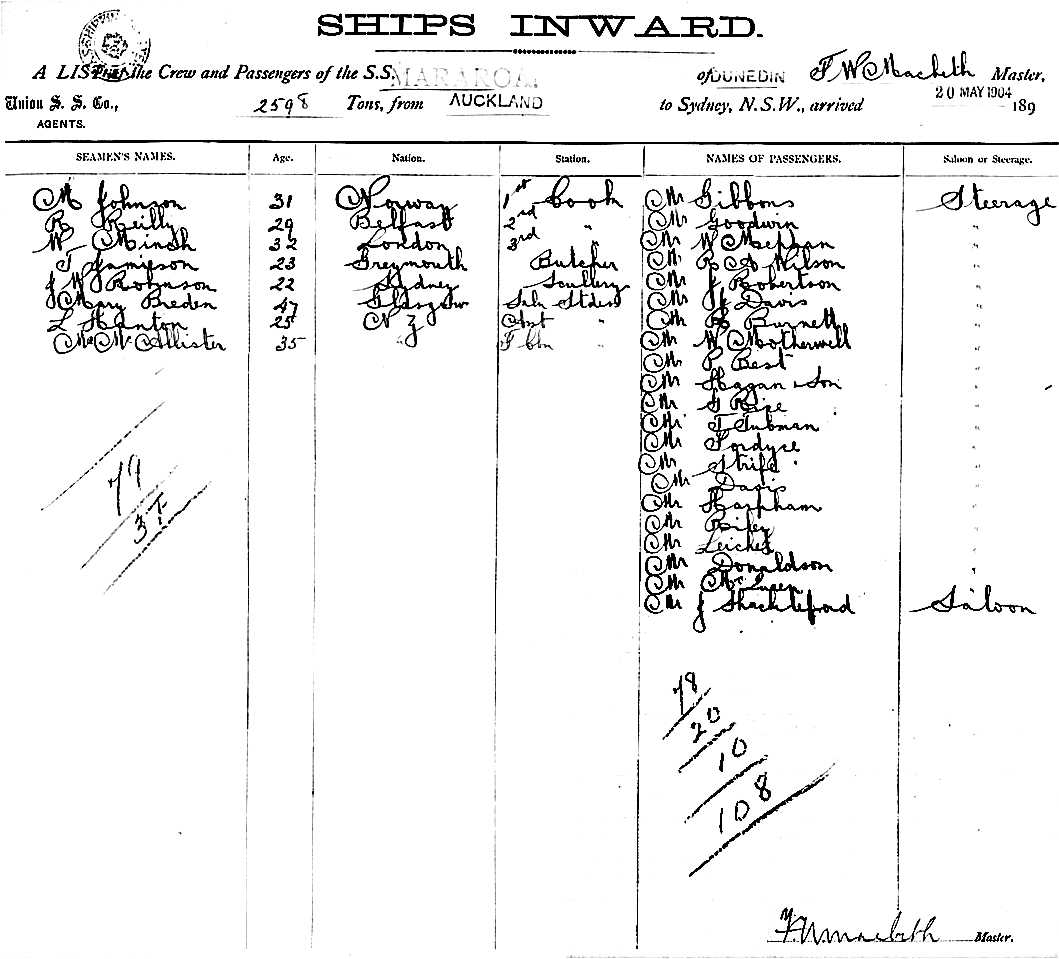 SHIPS INWARD.
A LIST of the Crew and Passengers of the S.S. MARAROA. of DUNEDIN F W Macbeth Master,
Union S. S. Co., 2598 Tons, from AUCKLAND to Sydney, N.S.W., arrived 20 MAY 1904 189
AGENTS.
SEAMEN'S NAMES. Age. Nation. Station. NAMES OF PASSENGERS. Saloon or Steerage.
M Johnson 31 Norway 1st Cook Mr Gibbons Steerage
R Reilly 29 Belfast 2nd " Mr Goodwin "
W Minch 32 London 3rd " Mr W "
T Jamieson 23 Greymouth Butcher Mr R A Wilson "
J W Robinson 22 Sydney Scullery Mr J Robertson "
Mary Breden 47 Glasgow Saln Stdess Mr J Davis "
L Hanton 25 N Z Asst " Mr R Burnett "
Mc Allister 35 " F Cbn " Mr W Motherwell "
Mr P Best "
Mr Haggan & Son "
Mr "
Mr T Tubman "
Mr Fordyce "
Mr Strife "
Mr Davis "
Mr Markham "
Mr Riley "
Mr "
Mr Donaldson "
Mr
Mr J Shackleford Saloon
79
37
78
20
10
108
F.W. Macbeth Master.